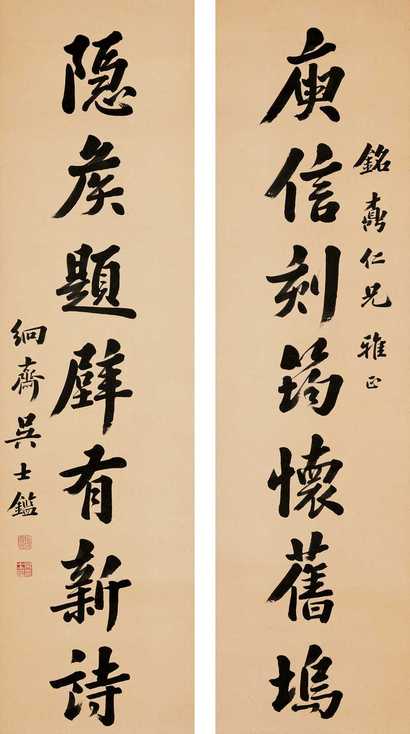 銘仁兄雅正
庾信刻筠懷舊塢
隐侯題壁有新詩
絅齋吳士鑑